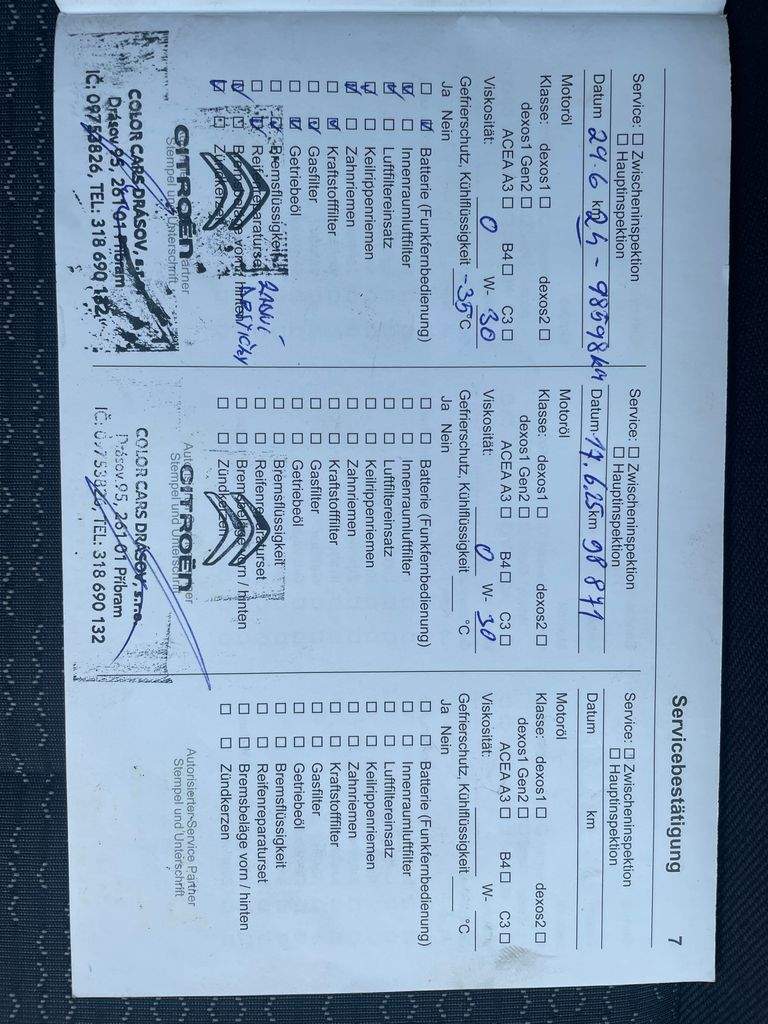 Servicebestätigung 7
Service: ☐ Zwischeninspektion
☐ Hauptinspektion
Datum 29.6 km 24 - 98598 km
Motoröl
Klasse: dexos1 ☐ dexos2 ☐
dexos1 Gen2 ☐
ACEA A3 ☐ B4 ☐ C3 ☐
Viskosität: 0 W- 30
Gefrierschutz, Kühlflüssigkeit -35 °C
Ja Nein
☐ ☑ Batterie (Funkfernbedienung)
☑ ☐ Innenraumluftfilter
☑ ☐ Luftfiltereinsatz
☑ ☐ Keilrippenriemen
☑ ☐ Zahnriemen
☐ ☑ Kraftstofffilter
☐ ☑ Gasfilter
☐ ☑ Getriebeöl
☐ ☑ Bremsflüssigkeit
☐ ☑ Reifenreparaturset ZADNÍ
☑ ☐ Bremsbeläge vorn / hinten
☑ ☐ Zündkerzen
CITROËN
Stempel und Unterschrift
COLOR CARS DRÁSOV, s.r.o.
Drásov 95, 261 01 Příbram
IČ: 09753826, TEL: 318 690 132
Service: ☐ Zwischeninspektion
☐ Hauptinspektion
Datum 17.6.25 km 98 871
Motoröl
Klasse: dexos1 ☐ dexos2 ☐
dexos1 Gen2 ☐
ACEA A3 ☐ B4 ☐ C3 ☐
Viskosität: 0 W- 30
Gefrierschutz, Kühlflüssigkeit °C
Ja Nein
☐ ☐ Batterie (Funkfernbedienung)
☐ ☐ Innenraumluftfilter
☐ ☐ Luftfiltereinsatz
☐ ☐ Keilrippenriemen
☐ ☐ Zahnriemen
☐ ☐ Kraftstofffilter
☐ ☐ Gasfilter
☐ ☐ Getriebeöl
☐ ☐ Bremsflüssigkeit
☐ ☐ Reifenreparaturset
☐ ☐ Bremsbeläge vorn / hinten
☐ ☐ Zündkerzen
CITROËN
Stempel und Unterschrift
COLOR CARS DRÁSOV, s.r.o.
Drásov 95, 261 01 Příbram
IČ: 09753826, TEL: 318 690 132
Service: ☐ Zwischeninspektion
☐ Hauptinspektion
Datum km
Motoröl
Klasse: dexos1 ☐ dexos2 ☐
dexos1 Gen2 ☐
ACEA A3 ☐ B4 ☐ C3 ☐
Viskosität: W-
Gefrierschutz, Kühlflüssigkeit °C
Ja Nein
☐ ☐ Batterie (Funkfernbedienung)
☐ ☐ Innenraumluftfilter
☐ ☐ Luftfiltereinsatz
☐ ☐ Keilrippenriemen
☐ ☐ Zahnriemen
☐ ☐ Kraftstofffilter
☐ ☐ Gasfilter
☐ ☐ Getriebeöl
☐ ☐ Bremsflüssigkeit
☐ ☐ Reifenreparaturset
☐ ☐ Bremsbeläge vorn / hinten
☐ ☐ Zündkerzen
Autorisierter Service Partner
Stempel und Unterschrift